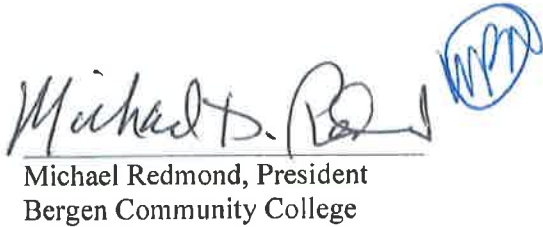 Michael D. Redmond
Michael Redmond, President
Bergen Community College